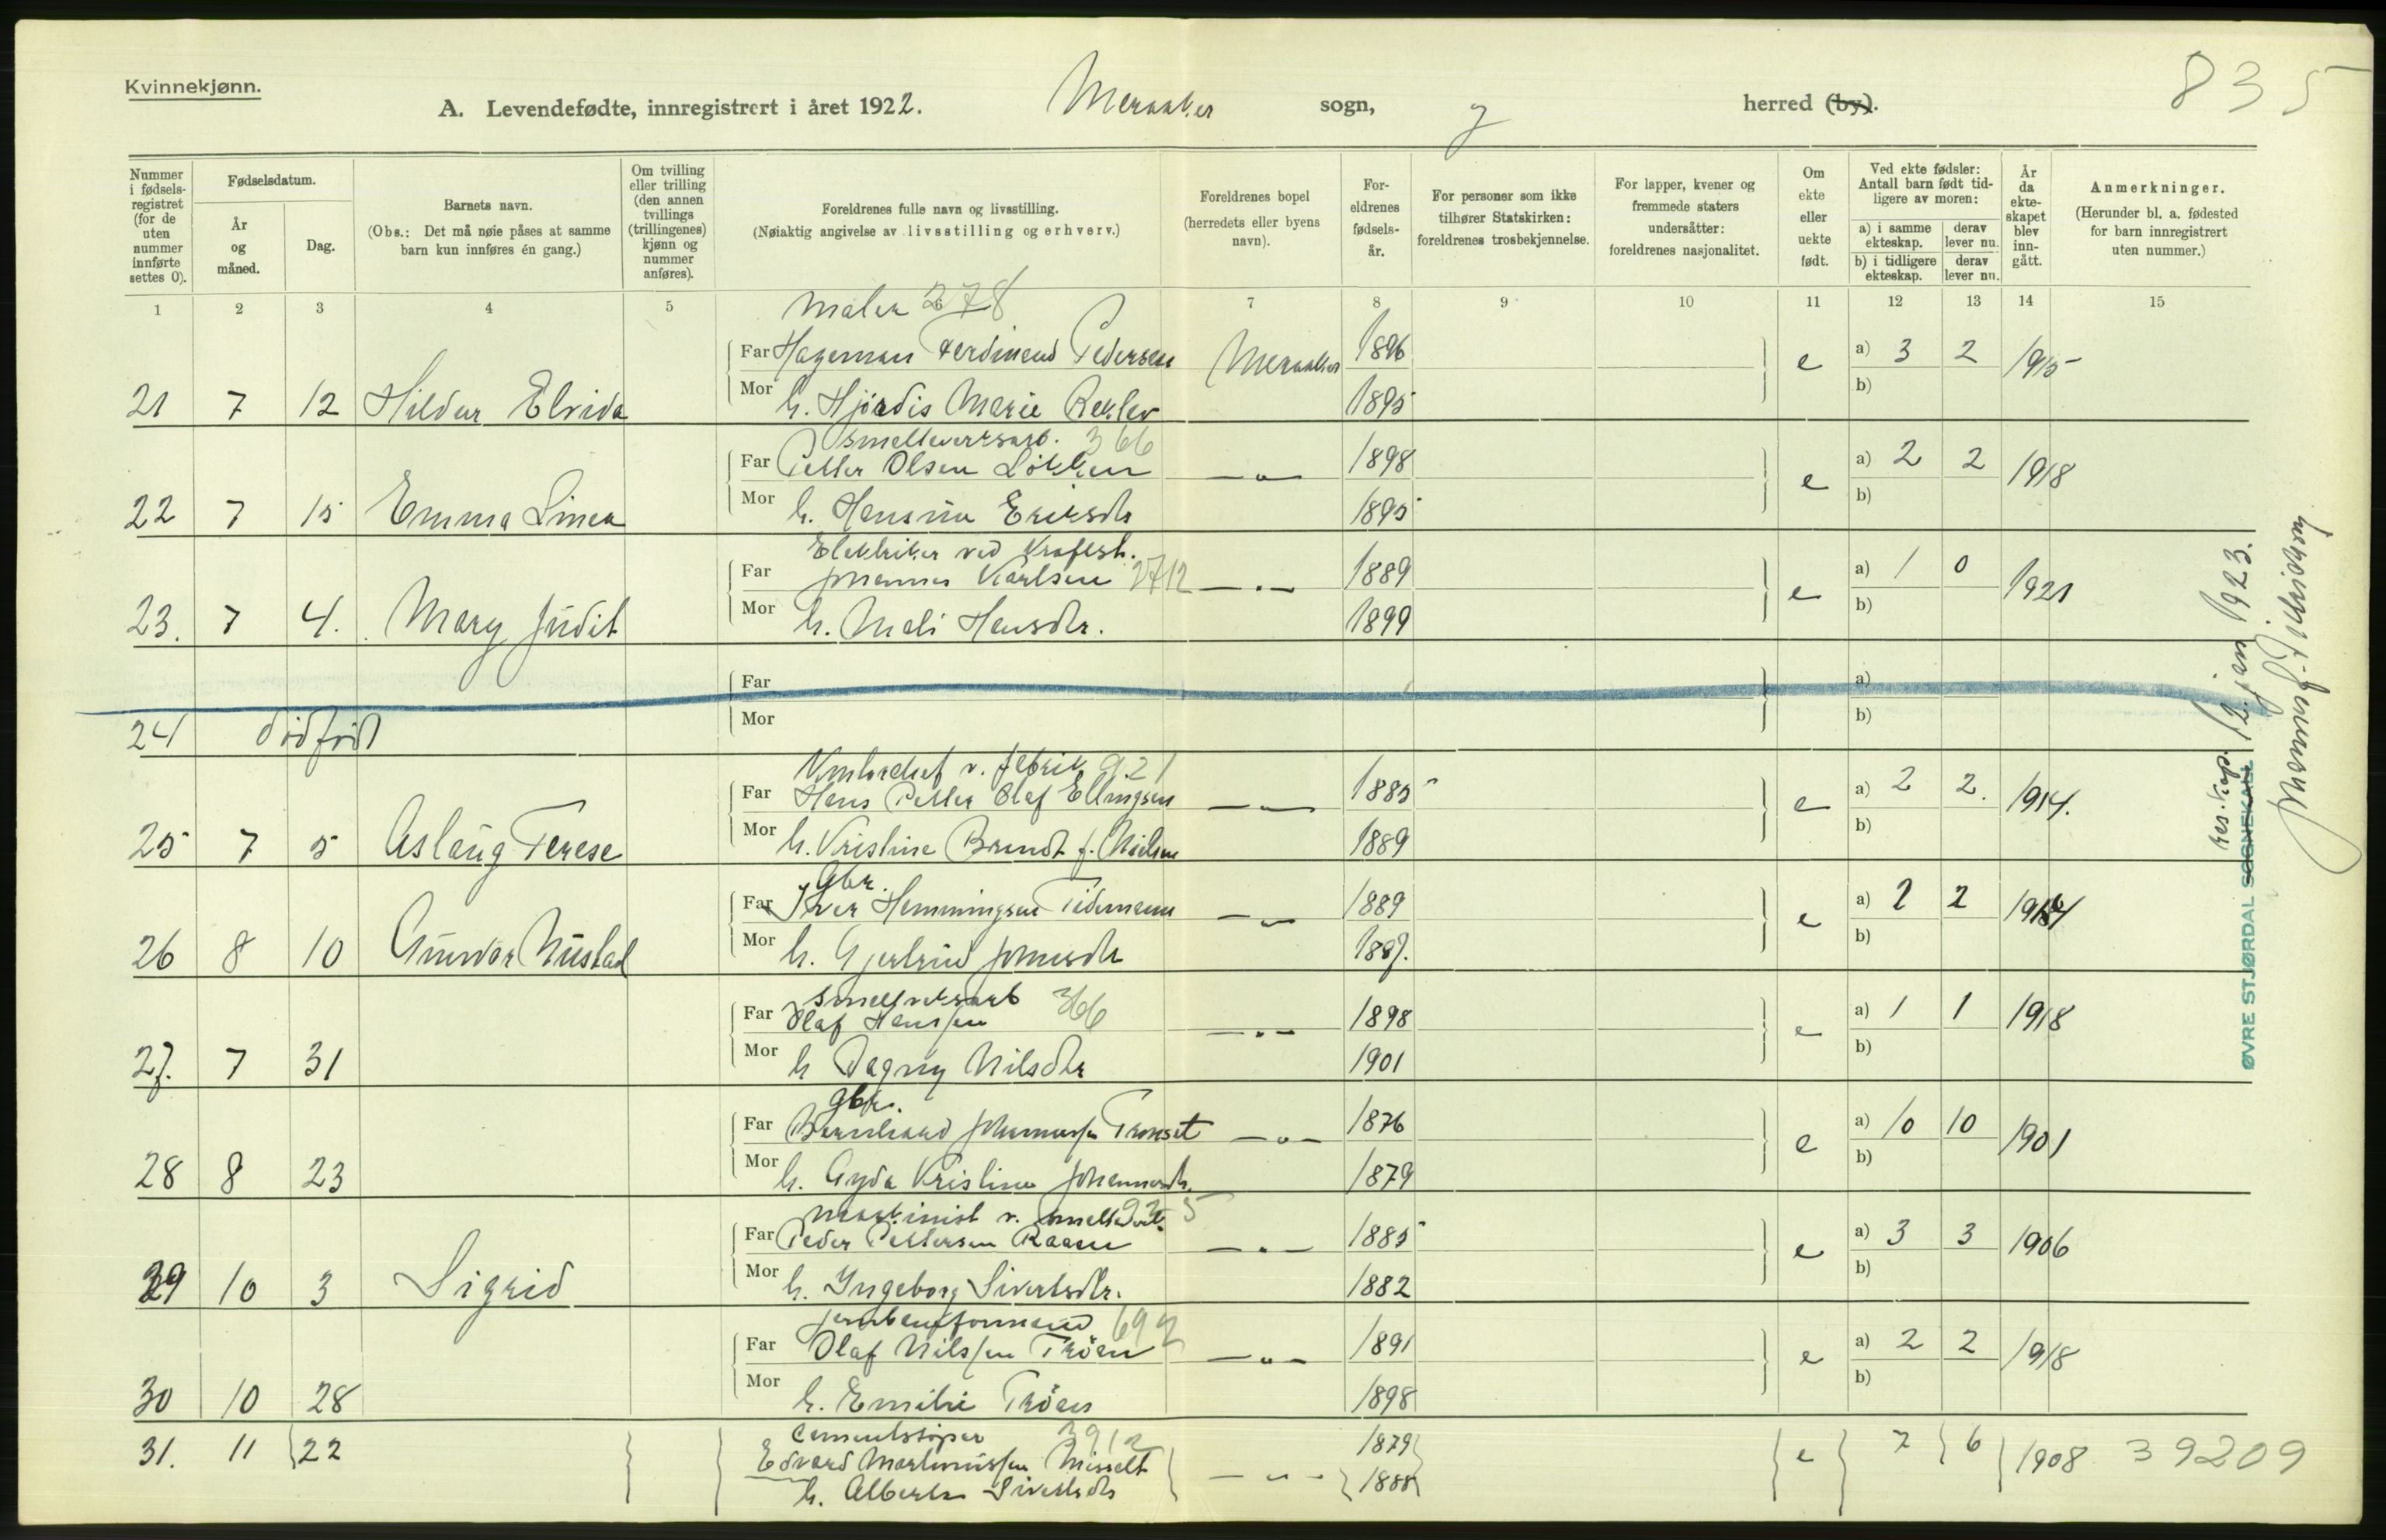 Kvinnekjønn.
835
A. Levendefødte, innregistrert i året 1922. Meraaker sogn, herred (by).
Nummer i fødsels-registret (for de uten nummer innførte settes 0).
Fødselsdatum.
År og måned.
Dag.
Barnets navn.
(Obs.: Det må nøie påses at samme barn kun innføres én gang.)
Om tvilling eller trilling (den annen tvillings (trillingenes) kjønn og nummer anføres).
Foreldrenes fulle navn og livsstilling.
(Nøiaktig angivelse av livsstilling og erhverv.)
Foreldrenes bopel (herredets eller byens navn).
For-eldrenes fødsels-år.
For personer som ikke tilhører Statskirken: foreldrenes trosbekjennelse.
For lapper, kvener og fremmede staters undersåtter: foreldrenes nasjonalitet.
Om ekte eller uekte født.
Ved ekte fødsler: Antall barn født tid-ligere av moren:
a) i samme ekteskap. derav lever nu.
b) i tidligere ekteskap. derav lever nu.
År da ekte-skapet blev inn-gått.
Anmerkninger.
(Herunder bl. a. fødested for barn innregistrert uten nummer.)
1 2 3 4 5 6 7 8 9 10 11 12 13 14 15
Maler 278
Far Hageman Ferdinend Pedersen Meraaker 1896 e a) 3 2 1915
21 7 12 Hildur Elvida Mor h. Hjördis Marie 1895 b)
Smelteverksarb. 366
Far Petter Olsen Løkken 1898 e a) 2 2 1918
22 7 15 Emma Linea Mor h. Hansine Eriksdtr 1895 b)
Elektriker ved Kraftst.
Far Johannes Karlsen 2712 1889 e a) 1 0 1921
23. 7 4. Mary Judit Mor h. Mali Hansdtr. 1899 b)
Far a)
24 dødfødt Mor b)
Kontorchef v. fabrik 921
Far Hans Petter Olaf Ellingsen 1885 e a) 2 2. 1914.
25 7 5 Aslaug Terese Mor h. Kristine Brandt f. Nielsen 1889 b)
Gbr.
Far Iver Hemmingsen Tidemann 1889 e a) 2 2
26 8 10 Gunvor Nustad Mor h. Gjertrud Johnsdtr 1887. b)
Smelteverksarb 366
Far Olaf Hanssen 1898 e a) 1 1 1918
27. 7 31 Mor h Dagny Nilsdtr 1901 b)
Gbr.
Far Bernhard Johannessen Tronset 1876 e a) 10 10 1901
28 8 23 Mor h. Gyda Kristine Johannesdtr. 1879 b)
Maskinist v. smelteverk. 925
Far Peder Pettersen Raaen 1885 e a) 3 3 1906
29 10 3 Sigrid Mor h. Ingeborg Sivertsdtr. 1882 b)
Jernbaneformand 692
Far Olaf Nilssen Tröen 1891 e a) 2 2 1918
30 10 28 Mor h. Emilie Tröen 1898 b)
Cementstøper 3912
31. 11 22 Edvard Martinussen 1879 e 7 6 1908 39209
h. Alberte Sivertsdtr 1888
ØVRE STJØRDAL SOGNEKALL res. kap. 12. jan 1923.